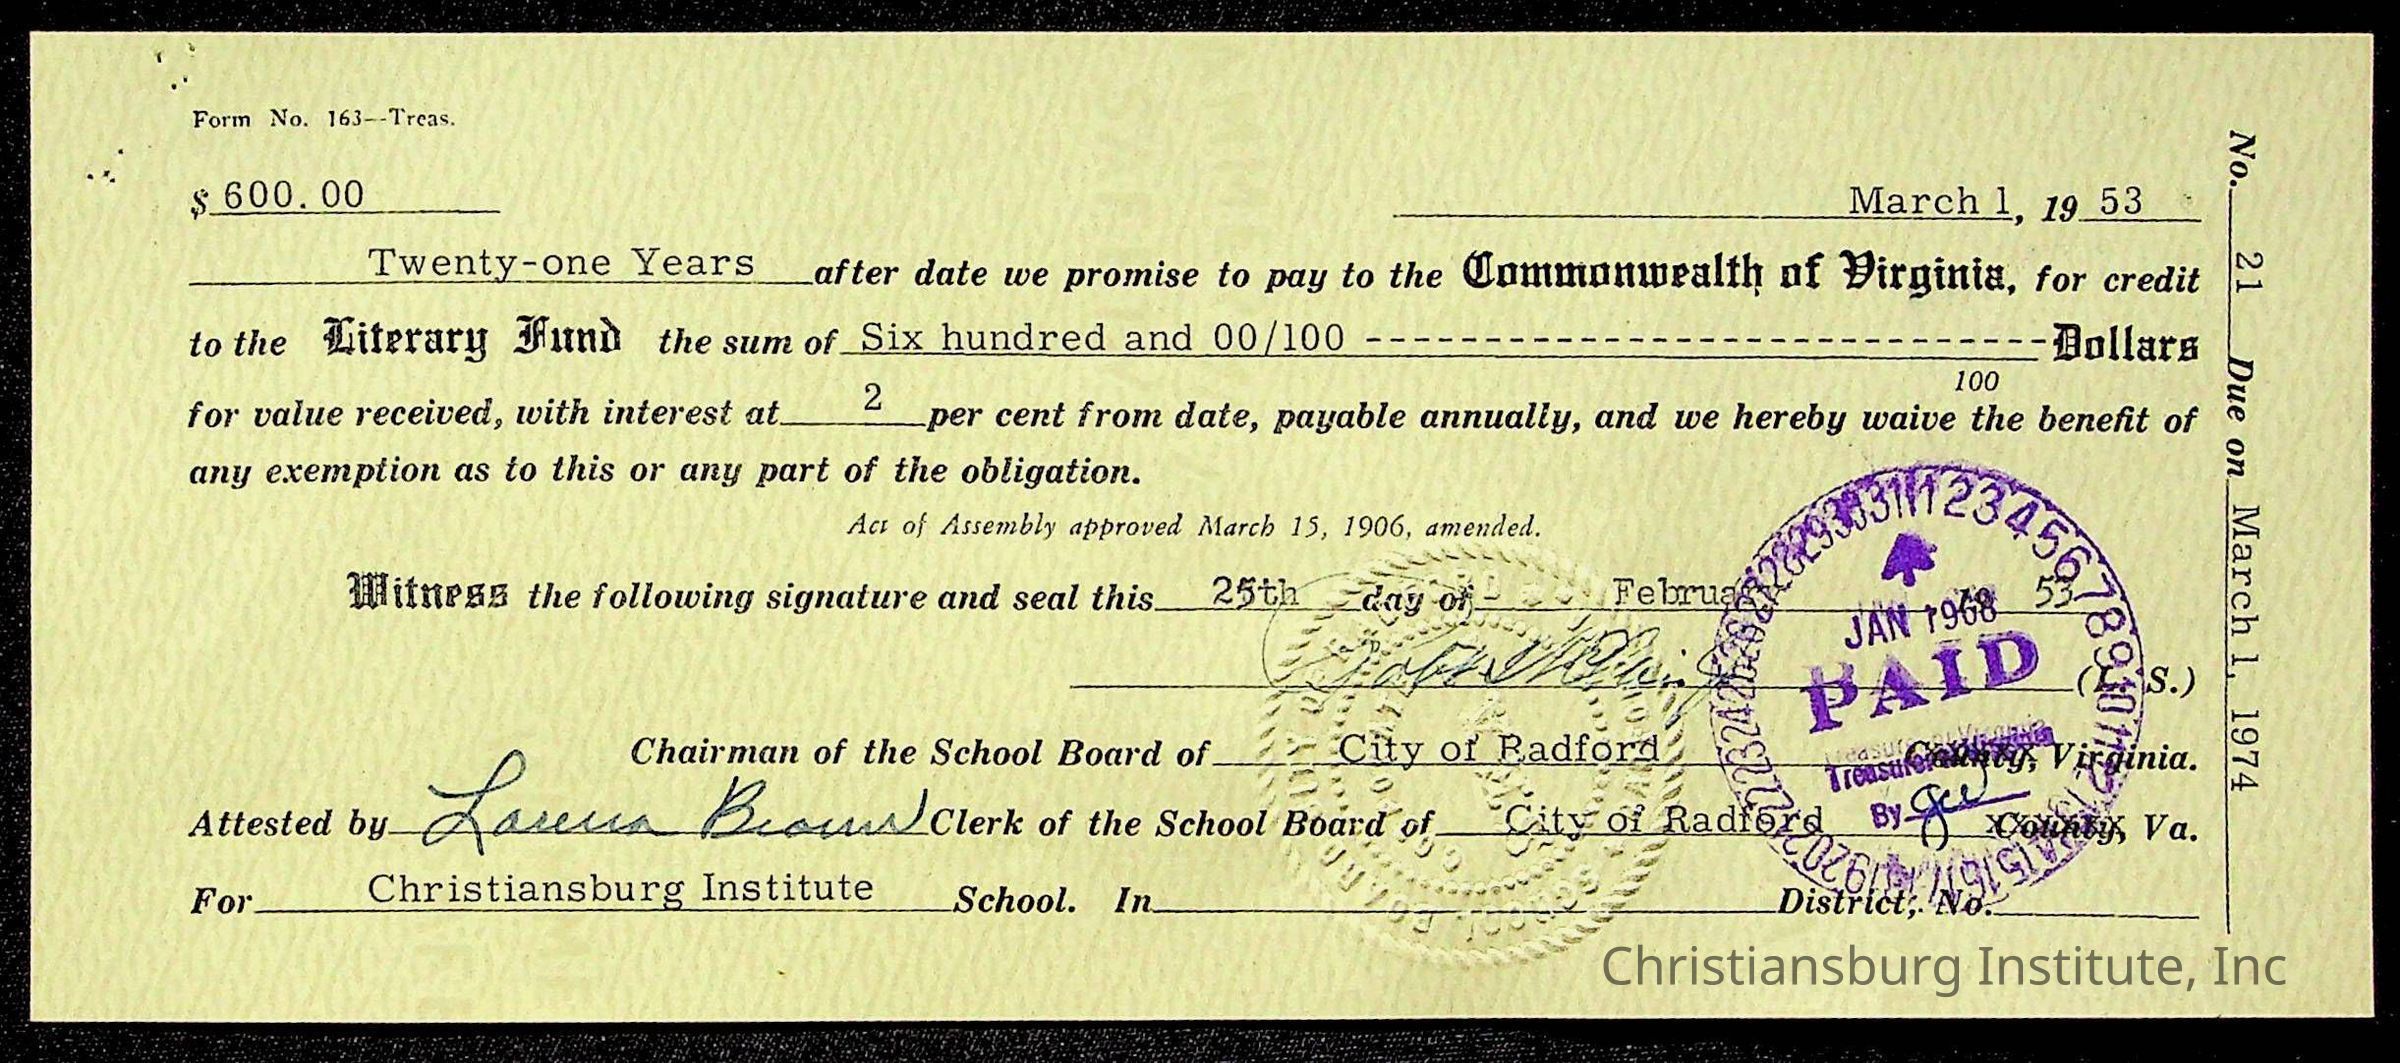 Form No. 163--Treas.
$ 600.00 March 1, 19 53
Twenty-one Years after date we promise to pay to the Commonwealth of Virginia, for credit
to the Literary Fund the sum of Six hundred and 00/100 ------------------------------ Dollars
100
for value received, with interest at 2 per cent from date, payable annually, and we hereby waive the benefit of
any exemption as to this or any part of the obligation.
Act of Assembly approved March 15, 1906, amended.
Witness the following signature and seal this 25th day of February 19 53
(L. S.)
Chairman of the School Board of City of Radford County, Virginia.
Attested by Lorena Brown Clerk of the School Board of City of Radford County, Va.
For Christiansburg Institute School. In District, No.
No. 21 Due on March 1, 1974
JAN 1968
PAID
By
Christiansburg Institute, Inc